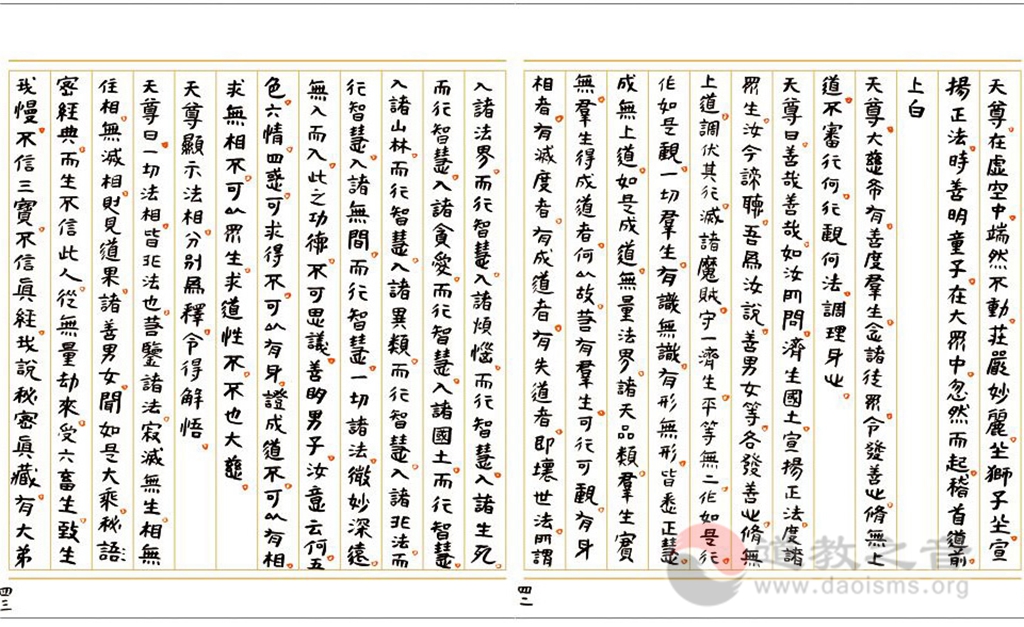 天尊在虛空中端然不動莊嚴妙麗坐獅子坐宣
揚正法時善明童子在大眾中忽然而起稽首道前
上白
天尊大慈希有善度羣生念諸徒眾令發善心脩無上
道不審行何行觀何法調理身心
天尊曰善哉善哉如汝所問濟生國土宣揚正法度諸
眾生汝今諦聽吾爲汝說善男女等各發善心脩無
上道調伏其行滅諸魔賊守一濟生平等無二作如是行
作如是觀一切羣生有識無識有形無形皆悉正慧
成無上道如是成道無量法界諸天品類羣生實
無羣生得成道者何以故若有羣生可行可觀有身
相者有滅度者有成道者有失道者即壞世法所謂
四二
入諸法界而行智慧入諸煩惱而行智慧入諸生死
而行智慧入諸貪愛而行智慧入諸國土而行智慧
入諸山林而行智慧入諸異類而行智慧入諸非法而
行智慧入諸無間而行智慧一切諸法微妙深遠
無入而入此之功德不可思議善明男子汝意云何五
色六情四惑可求得不可以有身證成道不可以有相
求無相不可以眾生求道性不不也大慈
天尊顯示法相分別爲釋令得解悟
天尊曰一切法相皆非法也若鑒諸法寂滅無生相無
住相無滅相則見道果諸善男女聞如是大乘秘語
密經典而生不信此人從無量劫來受六畜生致生
我慢不信三寶不信眞經我說秘密眞藏有大弟
四三
道教之音
www.daoisms.org